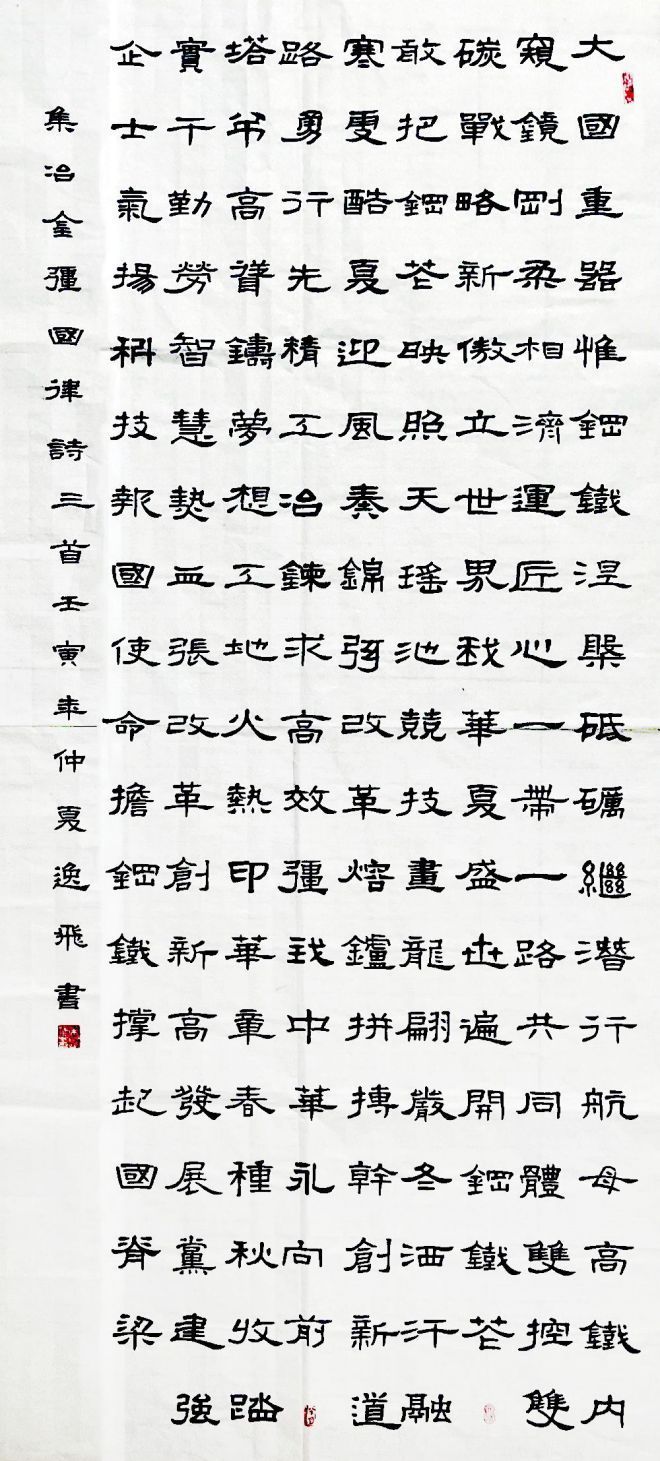 大國重器惟鋼鐵涅槃砥礪繼潛行航母高鐵內
窺鏡剛柔相濟運匠心一帶一路共同體雙控雙
碳戰略新傲立世界我華夏盛世遍開鋼鐵花
敢把鋼花映照天瑤池競技畫龍翩嚴冬洒汗融
寒雪酷夏迎風奏錦弦改革熔鑪拼搏幹創新道
路勇行先精工冶鍊求高效彊我中華永向前
塔吊高聳鑄夢想工地火熱印華章春種秋收踏
實干勤勞智慧熱血張改革創新高發展黨建強
企士氣揚科技報國使命擔鋼鐵撐起國脊梁
集冶金彊國律詩三首壬寅年仲夏逸飛書